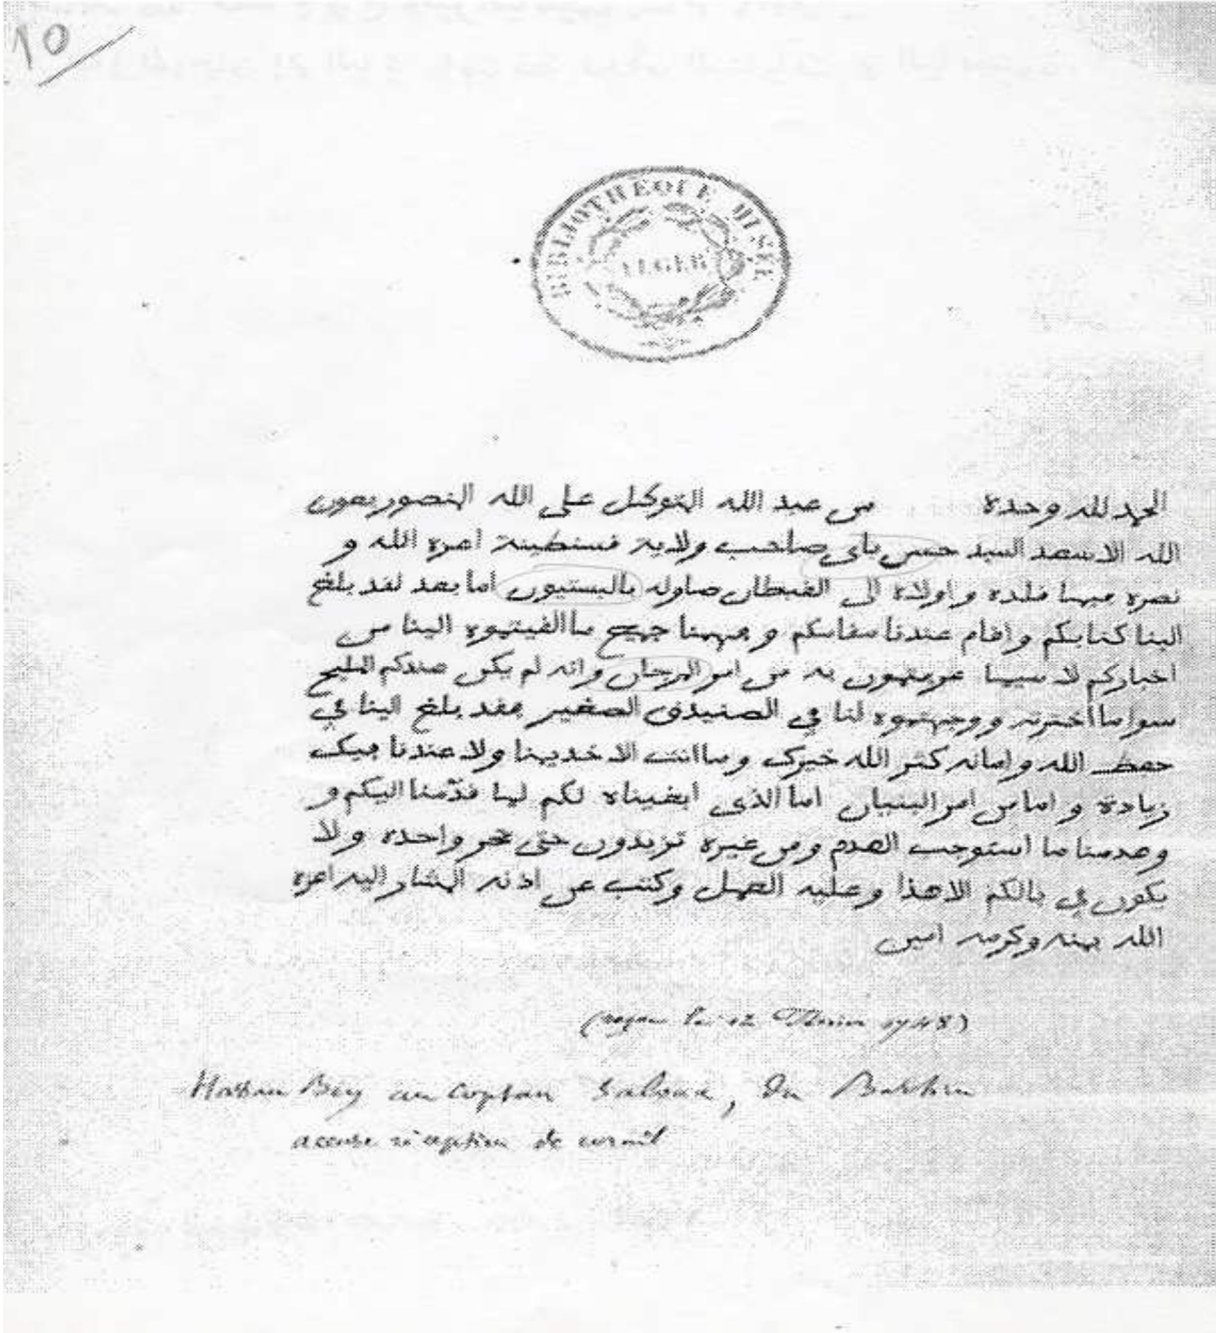 10
BIBLIOTHEQUE MUSEE
ALGER
الحمد لله وحده من عبد الله المتوكل على الله المنصور بعون
الله الاسعد السيد حسن باي صاحب ولاية قسنطينة اعزه الله و
نصره مهما قلده و اولاه الى القبطان صاوله بالبستيون اما بعد لقد بلغ
الينا كتابكم و اقام عندنا مقامكم و فهمنا جميع ما الفيتموه الينا من
اخباركم لا سيما عرفتمون به من امر المرجان وانه لم يكن عندكم المليح
سوا ما اخترته ووجهتموه لنا في الصنيدق الصغير فقد بلغ الينا في
حفظ الله و امانه كثر الله خيرك وما انت الا خديمنا ولا عندنا فيك
زيادة و اما من امر البنيان اما الذي ابقيناه لكم لما قدّمنا اليكم و
وهدمنا ما استوجب الهدم ومن غيره تزيدون حتى حجر واحده ولا
يكون في بالكم الا هذا وعليه العمل وكتب عن اذنه المشار اليه اعزه
الله بمنه وكرمه امين
(reçue le 12 Février 1748)
Hassan Bey au Captan Salvaa, Du Bastion
accuse réception de corail